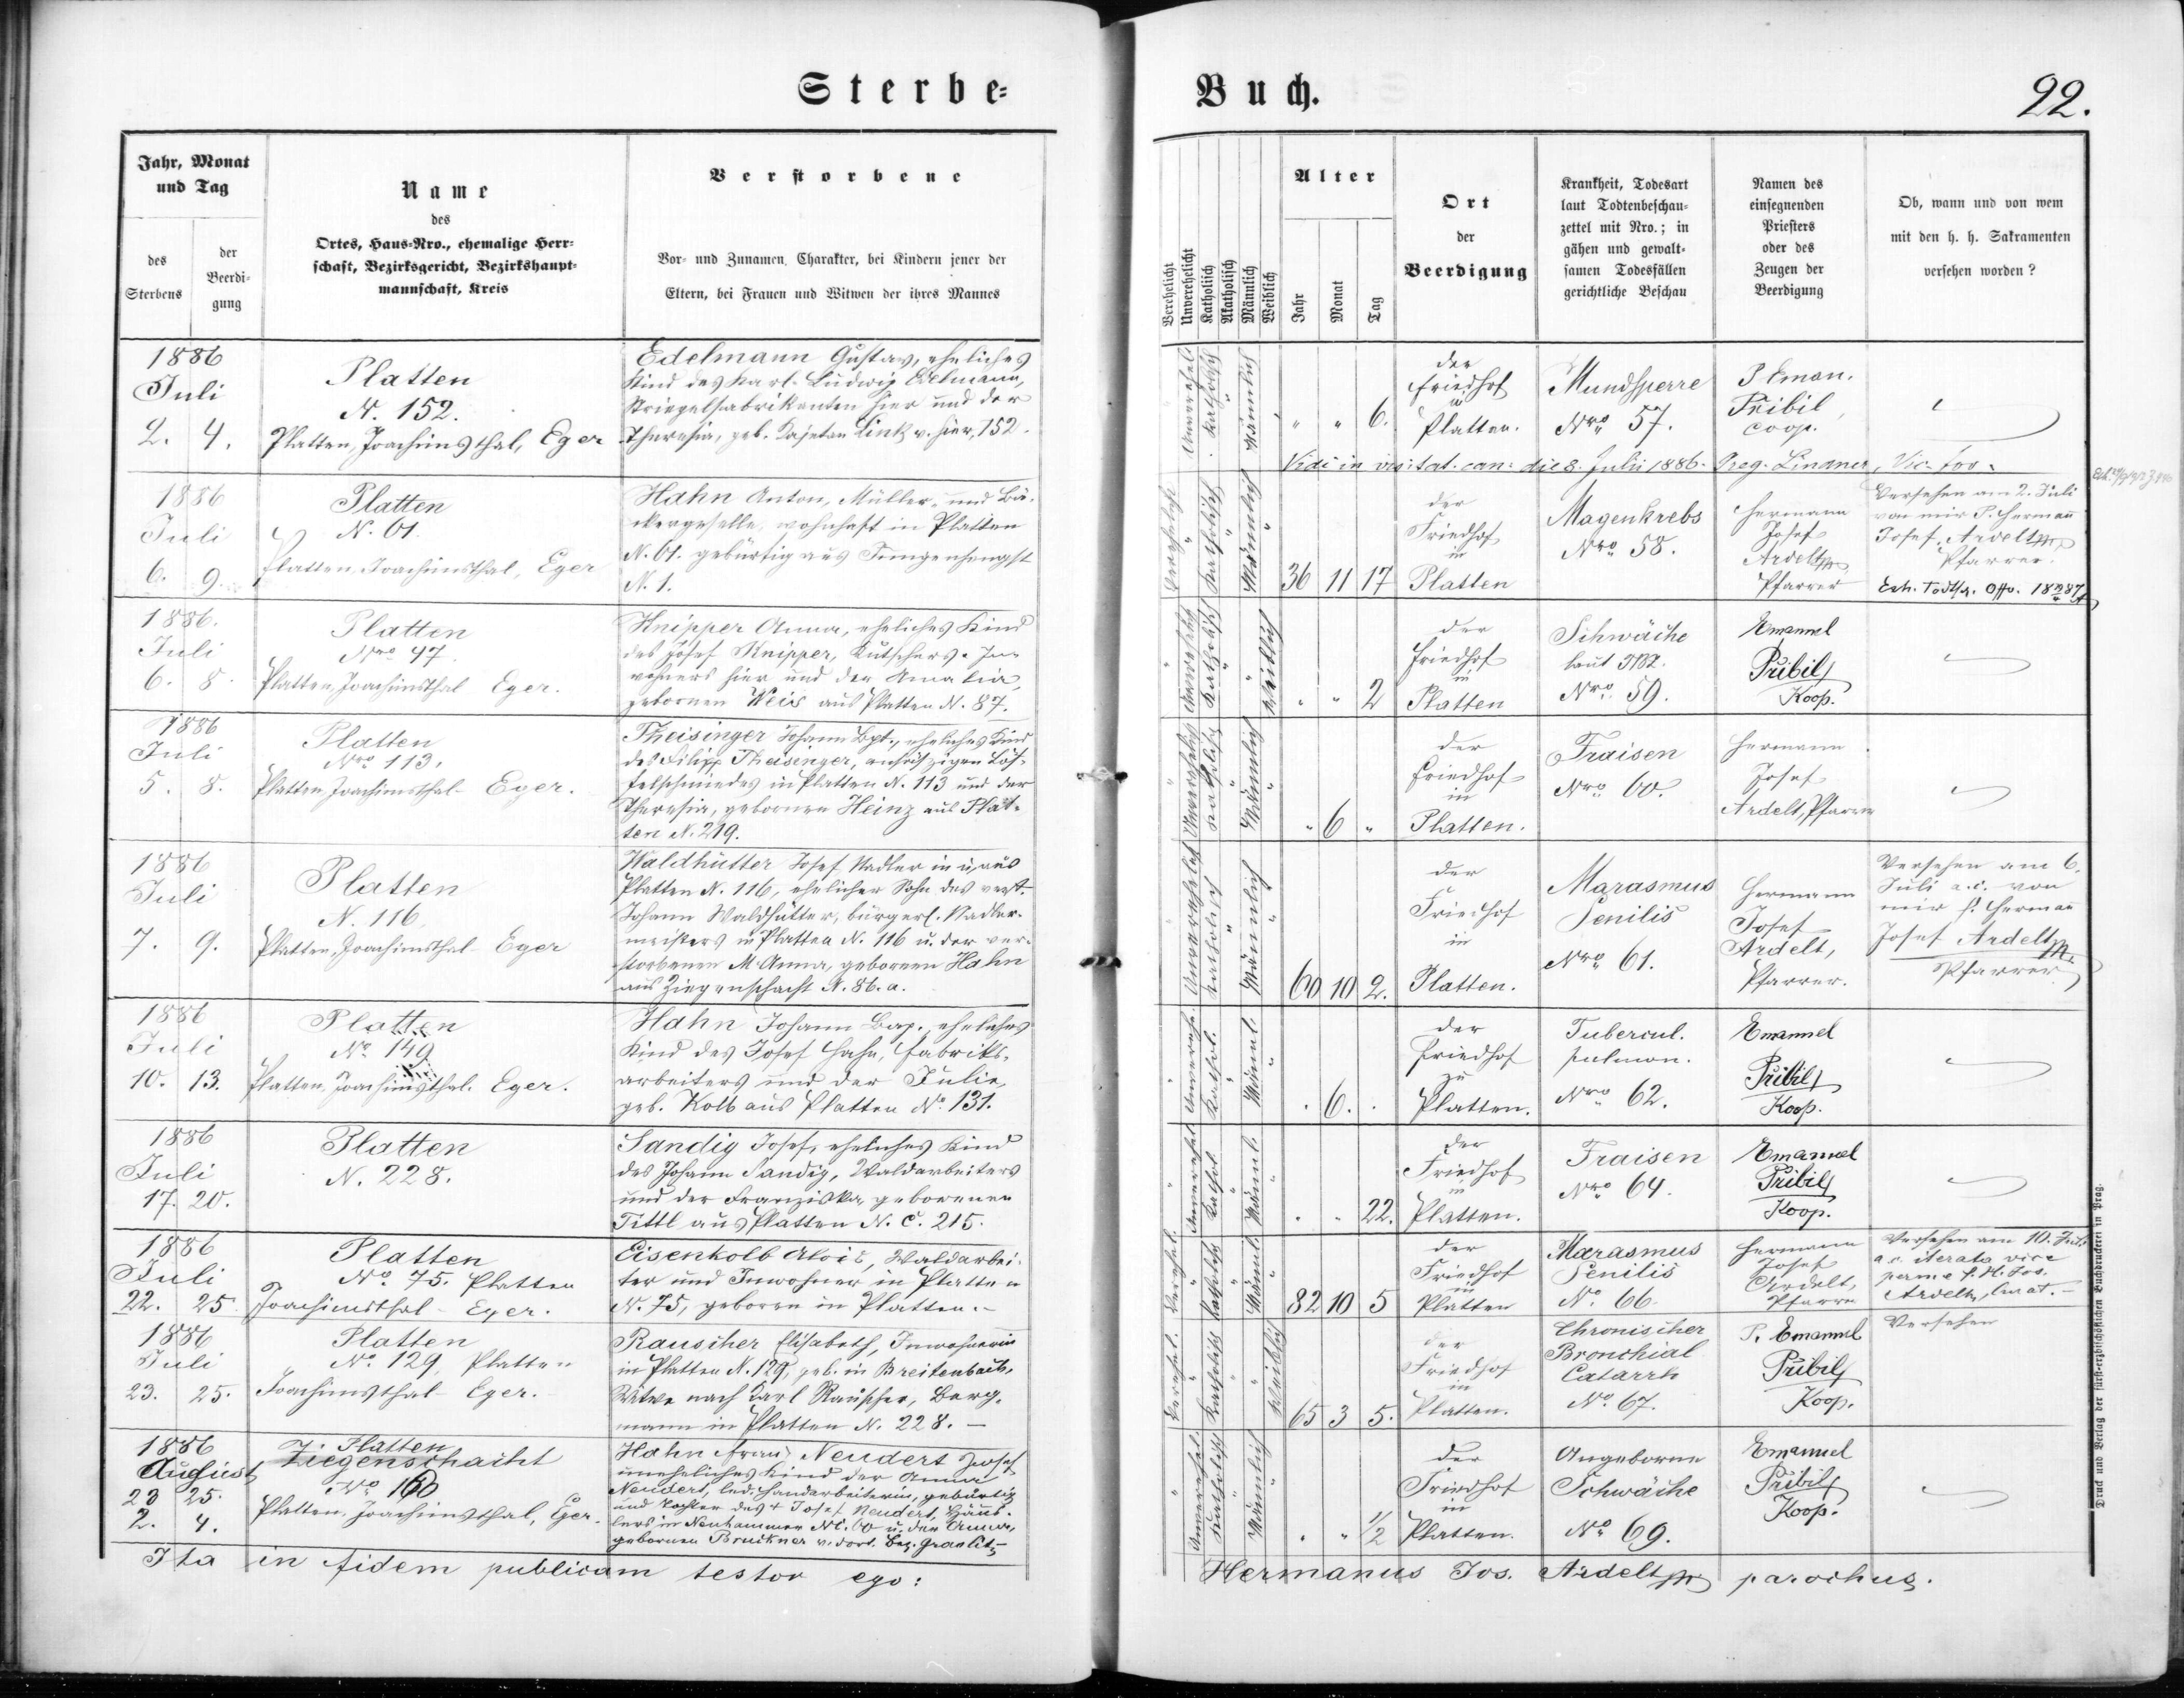 Sterbe-
Jahr, Monat
und Tag
des
Sterbens
der
Beerdi-
gung
Name
des
Ortes, Haus-Nro., ehemalige Herr-
schaft, Bezirksgericht, Bezirkshaupt-
mannschaft, Kreis
Verstorbene
Vor- und Zunamen, Charakter, bei Kindern jener der
Eltern, bei Frauen und Witwen der ihres Mannes
1886
Juli
2. 4.
Platten
N. 152.
Platten, Joachimsthal, Eger
Edelmann Gustav, eheliches
Kind des Karl Ludwig Edelmann,
Striegelfabrikanten hier und der
Theresia, geb. Kajetan Link v. hier, 152.
1886
Juli
6. 9.
Platten
N. 61.
Platten, Joachimsthal, Eger
Hahn Anton, Müller- und Bä-
ckergeselle, wohnhaft in Platten
N. 61. gebürtig aus Jungenhengst
N. 1.
1886.
Juli
6. 8.
Platten
Nro 47.
Platten, Joachimsthal Eger.
Knipper Anna, eheliches Kind
des Josef Knipper, Kutschers, In-
wohners hier und der Amalia,
gebornen Weis aus Platten N. 87.
1886
Juli
5. 8.
Platten
Nro 113.
Platten, Joachimsthal Eger.
Theisinger Johann Bpt., eheliches Kind
des Filipp Theisinger, ansäßigen Löf-
felschmiedes in Platten N. 113 und der
Theresia, gebornen Heinz aus Plat-
ten N. 219.
1886
Juli
7. 9.
Platten
N. 116.
Platten, Joachimsthal Eger
Waldhütter Josef Nadler in u. aus
Platten N. 116, ehelicher Sohn des verst.
Johann Waldhütter, bürgerl. Nadler-
meisters in Platten N. 116 u. der ver-
storbenen M. Anna, gebornen Hahn
aus Ziegenschacht N. 86. a.
1886
Juli
10. 13.
Platten
No 149
Platten, Joachimsthal. Eger.
Hahn Johann Bap., eheliches
Kind des Josef Hahn, Fabriks-
arbeiters und der Julie,
geb. Kolb aus Platten No 131.
1886
Juli
17. 20.
Platten
N. 228.
Sandig Josef, eheliches Kind
des Johann Sandig, Waldarbeiters
und der Franziska, geborenen
Tittl aus Platten N. C. 215.
1886
Juli
22. 25
Platten
No 75. Platten
Joachimsthal - Eger.
Eisenkolb Alois, Waldarbei-
ter und Inwohner in Platten
N. 75, geboren in Platten. -
1886
Juli
23. 25.
Platten
No 129 Platten
Joachimsthal Eger.
Rauscher Elisabeth, Inwohnerin
in Platten N. 129, geb. in Breitenbach,
Witwe nach Karl Rauscher, Berg-
mann in Platten N. 228. -
1886
August
23 25.
2. 4.
Platten
Ziegenschacht
Platten, Joachimsthal, Eger.
Hahn Neudert Josef
uneheliches Kind der Anna
Neudert, led. Handarbeiterin, gebürtig
und Tochter des + Josef Neudert, Häus-
lers in Neuhammer NC. 60 u. der Anna,
gebornen Bruckner v. dort. Bez. Graslitz
Ita in fidem publicam testor ego:
Buch.
22.
Verehelicht
Unverehelicht
Katholisch
Akatholisch
Männlich
Weiblich
Alter
Jahr
Monat
Tag
Ort
der
Beerdigung
Krankheit, Todesart
laut Todtenbeschau-
zettel mit Nro.; in
gähen und gewalt-
samen Todesfällen
gerichtliche Beschau
Namen des
einsegnenden
Priesters
oder des
Zeugen der
Beerdigung
Ob, wann und von wem
mit den h. h. Sakramenten
versehen worden?
" " 6.
der
Friedhof
in
Platten.
Mundsperre
Nro 57.
P. Eman.
Pribil,
coop.
Vidi in visitat. can: die 8. Julii 1886. Greg. Lindner, Vic. for.
36 11 17
der
Friedhof
in
Platten
Magenkrebs
Nro 58.
Hermann
Josef
Ardelt
Pfarrer
Versehen am 2. Juli
von mir P. Hermann
Josef Ardelt
Pfarrer.
" " 2
der
Friedhof
in
Platten
Schwäche
laut
Nro 59.
Emanuel
Přibil
Koop.
" 6 "
der
Friedhof
in
Platten.
Fraisen
Nro 60.
Hermann
Josef
Ardelt, Pfarrer
60 10 2.
der
Friedhof
in
Platten.
Marasmus
Senilis
Nro 61.
Hermann
Josef
Ardelt,
Pfarrer.
Versehen am 6.
Juli a. c. von
mir P. Hermann
Josef Ardelt
Pfarrer
. 6. .
der
Friedhof
zu
Platten.
Tubercul.
pulmon.
Nro 62.
Emanuel
Přibil
Koop.
. . 22.
der
Friedhof
in
Platten.
Fraisen
Nro 64.
Emanuel
Přibil
Koop.
82 10 5
der
Friedhof
in
Platten
Marasmus
Senilis
No 66.
Hermann
Josef
Ardelt,
Pfarrer
Versehen am 10. Juli
a. c. iterata vice
per me P. H. Jos.
Ardelt, Curat. -
65 3 5.
der
Friedhof
in
Platten.
Chronischer
Bronchial
Catarrh
No 67.
P. Emanuel
Přibil
Koop.
Versehen
. " 1/2
der
Friedhof
in
Platten.
Angeborne
Schwäche
No 69.
Emanuel
Přibil
Koop.
Hermanus Jos. Ardelt parochus.
Druck und Verlag der fürst-erzbischöflichen Buchdruckerei in Prag.